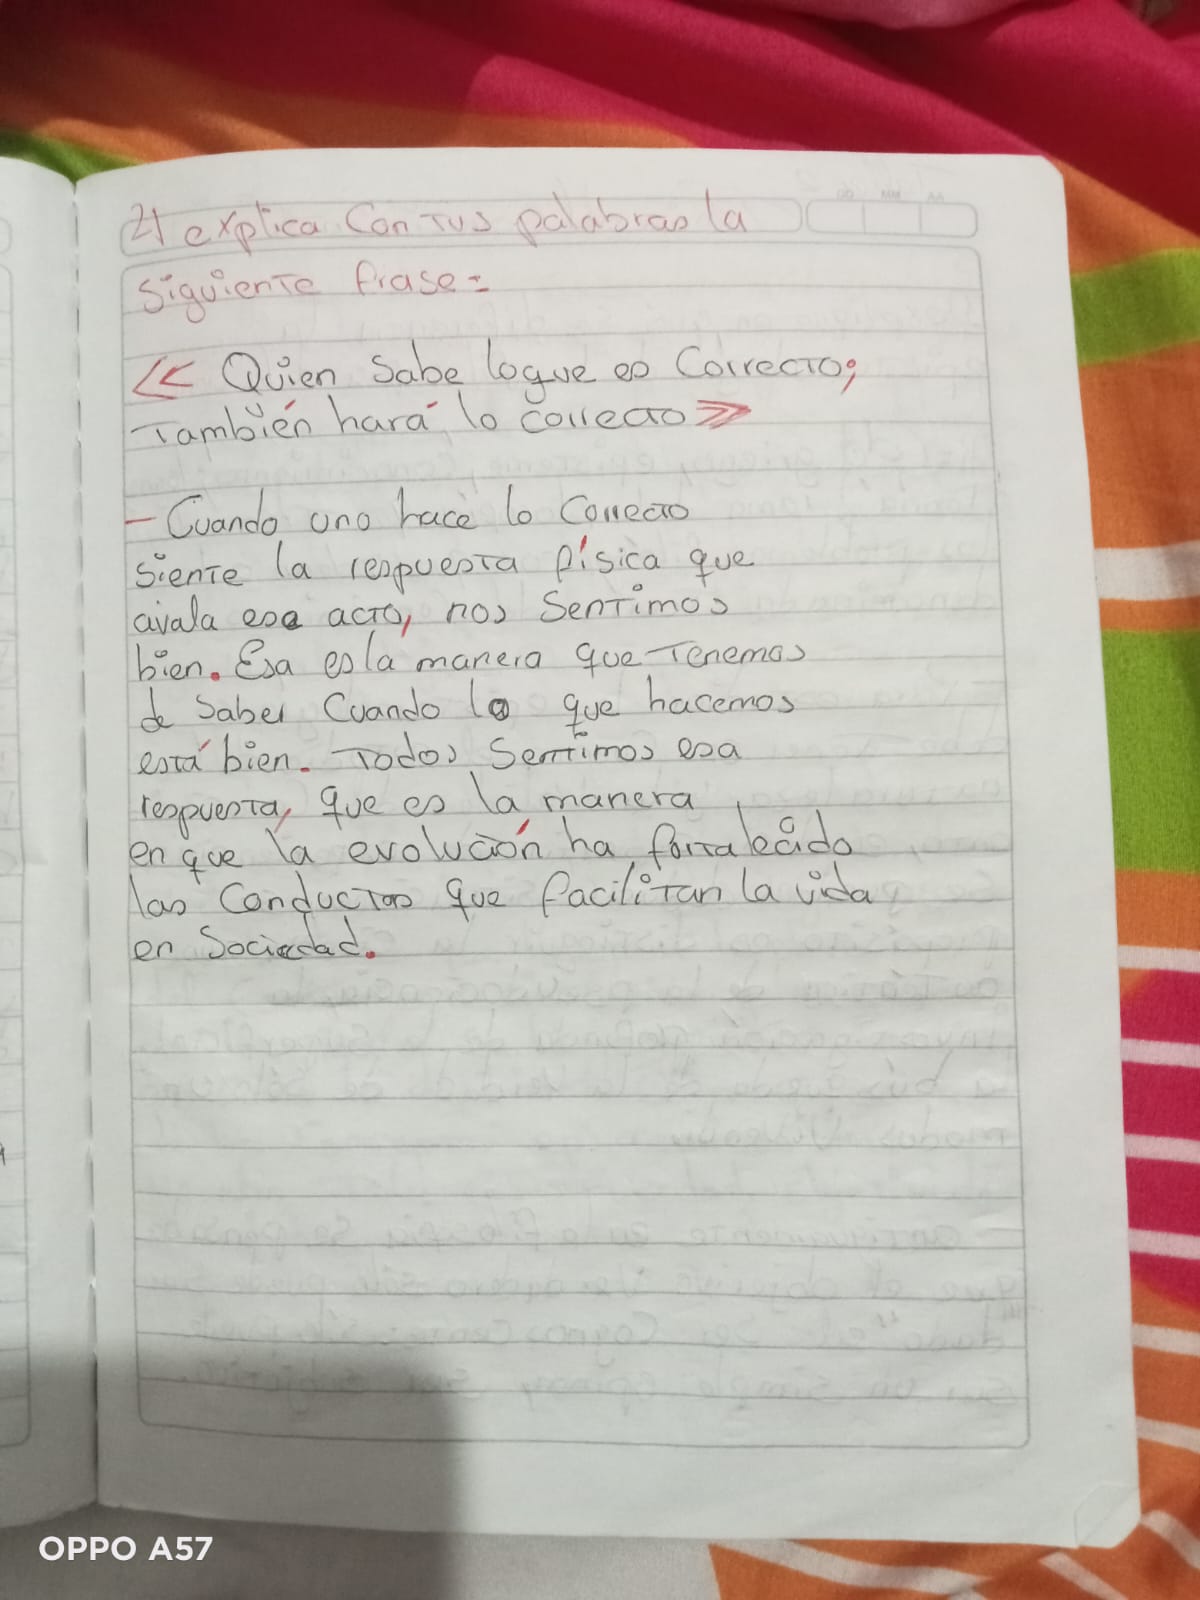 4) explica Con Tus palabras la
Siguiente frase:
<< Quien Sabe loque es Correcto;
También hará lo correcto >>
- Cuando uno hace lo Correcto
Siente la respuesta física que
avala ese acto, nos Sentimos
bien. Esa es la manera que Tenemos
de Saber Cuando lo que hacemos
está bien. Todos Sentimos esa
respuesta, que es la manera
en que la evolución ha fortalecido
las Conductas que facilitan la vida
en Sociedad.
OPPO A57